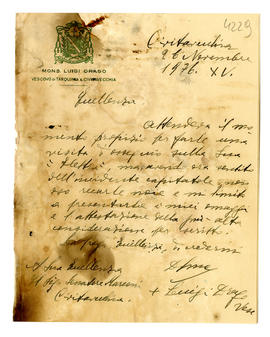 4229
MONS. LUIGI DRAGO
VESCOVO DI TARQUINIA E CIVITAVECCHIA
Civitavecchia
26 Novembre
1936. XV.
Eccellenza
Attendevo il mo-
mento propizio per farle una
visita d'ossequio nella Sua
ma avendo sentito
dell'incidente capitatole
recarle noie e mi limito
a presentarle i miei omaggi
e l'attestazione della più alta
considerazione per iscritto.
La prego Eccellenza, di credermi
A Sua Eccellenza
Il Sig. Senatore Marconi
Civitavecchia
+ Luigi Drago
Vesc